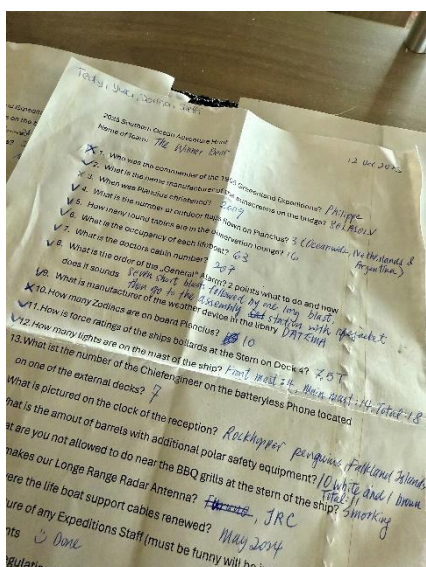 Tedy, Yuri, Sonia, Seth
2025 Southern Ocean Adventure Hunt
Name of Team: The Winner Divers
12 Dec 2025
X 1. Who was the commander of the 1905 Greenland Expeditions? Philippe
✓ 2. What is the name manufacturer of the sunscreens on the bridge? SOLASOLV
X 3. When was Plancius christened? 2009
✓ 4. What is the number of outdoor flags flown on Plancius? 3 (Oceanwide, Netherlands & Argentina)
✓ 5. How many round tables are in the observation lounge? 16
✓ 6. What is the occupancy of each lifeboat? 63
✓ 7. What is the doctors cabin number? 207
✓ 8. What is the order of the „General" Alarm? 2 points what to do and how
does it sounds Seven short blasts followed by one long blast,
then go to the assembly station with lifejacket
✓ 9. What is manufacturer of the weather device in the library DATEMA
X 10. How many Zodiacs are on board Plancius? 10
✓ 11. How is force ratings of the ships bollards at the Stern on Deck 4? 7,5T
✓ 12. How many lights are on the mast of the ship? Front mast: 4, Main mast: 14, Total: 18
13. What ist the number of the Chiefengineer on the batteryless Phone located
on one of the external decks? 7
What is pictured on the clock of the reception? Rockhopper penguins, Falkland Islands
hat is the amout of barrels with additional polar safety equipment? 10 white and 1 brown
Total: 11
at are you not allowed to do near the BBQ grills at the stern of the ship? Smorking
makes our Longe Range Radar Antenna? JRC
ere the life boat support cables renewed? May 2024
ure of any Expeditions Staff (must be funny will be
nts Done